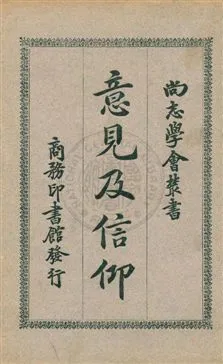 尚志學會叢書
意見及信仰
商務印書館發行